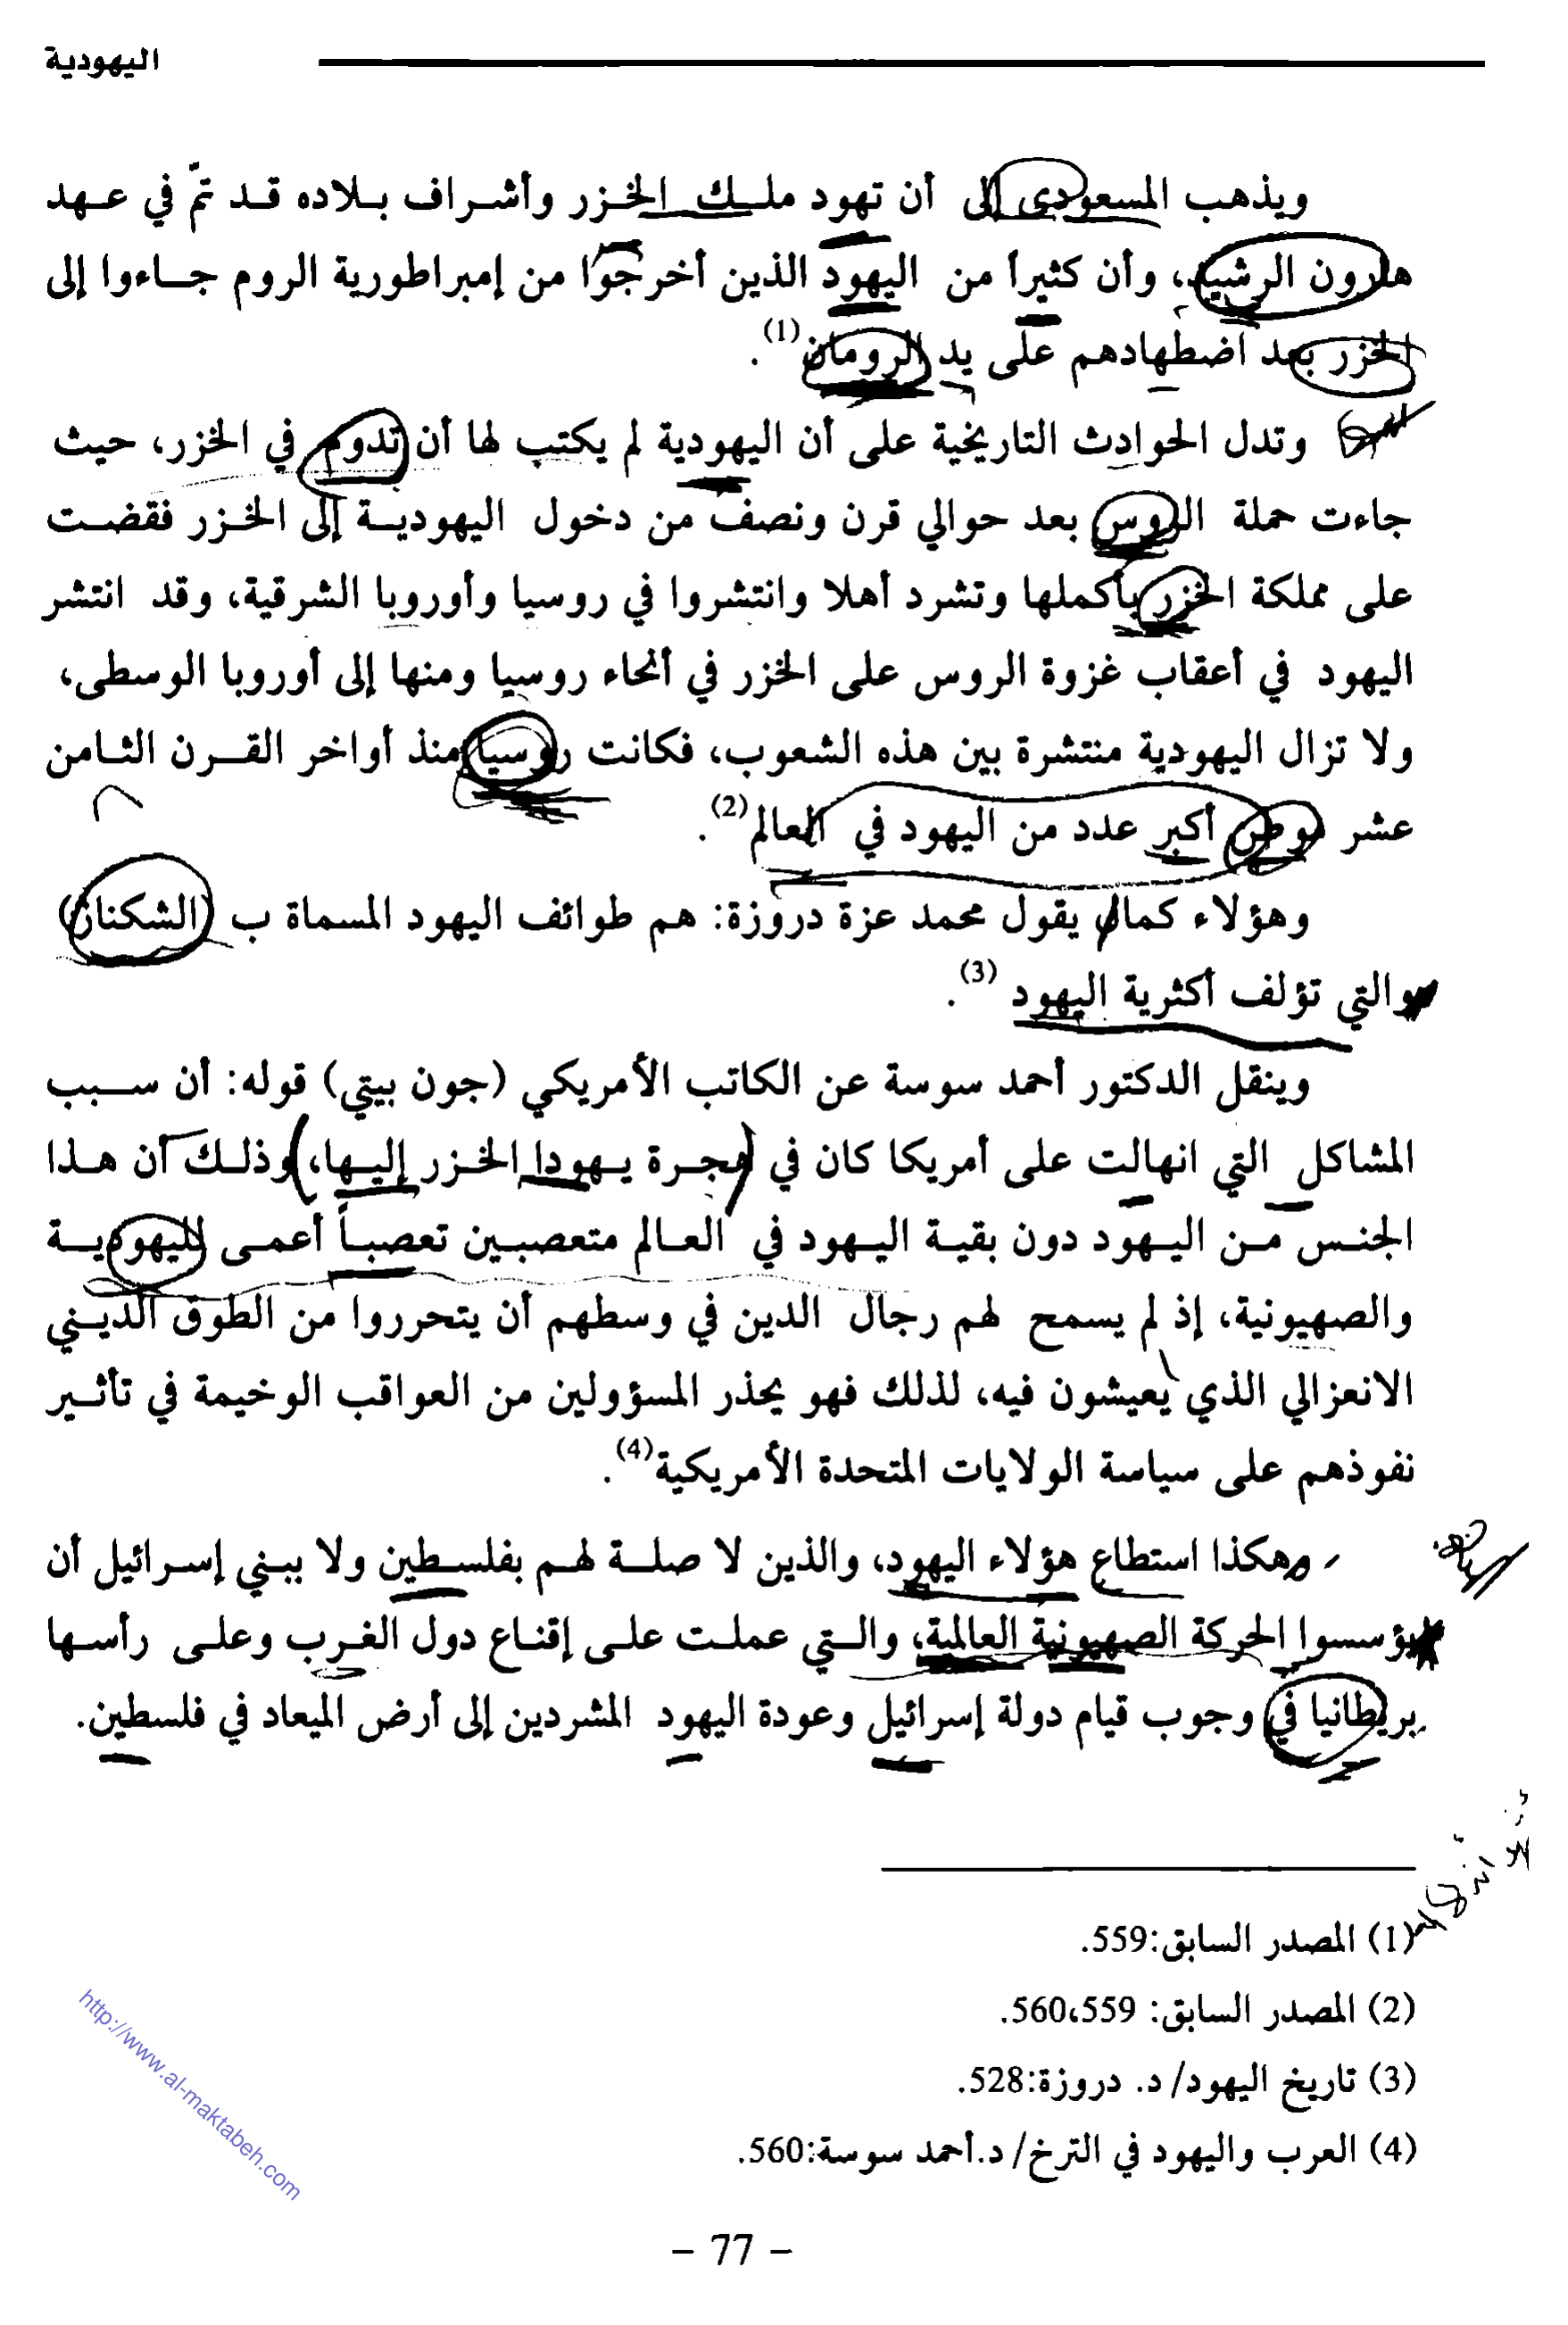 اليهودية
ويذهب المسعودي إلى أن تهود ملك الخزر وأشراف بلاده قد تمّ في عهد
هارون الرشيد، وأن كثيراً من اليهود الذين أخرجوا من إمبراطورية الروم جاءوا إلى
الخزر بعد اضطهادهم على يد الرومان(1).
وتدل الحوادث التاريخية على أن اليهودية لم يكتب لها أن تدوم في الخزر، حيث
جاءت حملة الروس بعد حوالي قرن ونصف من دخول اليهودية إلى الخزر فقضت
على مملكة الخزر بأكملها وتشرد أهلا وانتشروا في روسيا وأوروبا الشرقية، وقد انتشر
اليهود في أعقاب غزوة الروس على الخزر في أنحاء روسيا ومنها إلى أوروبا الوسطى،
ولا تزال اليهودية منتشرة بين هذه الشعوب، فكانت روسيا منذ أواخر القرن الثامن
عشر موطن أكبر عدد من اليهود في العالم(2).
وهؤلاء كمال يقول محمد عزة دروزة: هم طوائف اليهود المسماة ب (الشكناز)
والتي تؤلف أكثرية اليهود (3).
وينقل الدكتور أحمد سوسة عن الكاتب الأمريكي (جون بيتي) قوله: أن سبب
المشاكل التي انهالت على أمريكا كان في هجرة يهودا الخزر إليها، وذلك أن هذا
الجنس من اليهود دون بقية اليهود في العالم متعصبين تعصباً أعمى لليهودية
والصهيونية، إذ لم يسمح لهم رجال الدين في وسطهم أن يتحرروا من الطوق الديني
الانعزالي الذي يعيشون فيه، لذلك فهو يحذر المسؤولين من العواقب الوخيمة في تأثير
نفوذهم على سياسة الولايات المتحدة الأمريكية(4).
وهكذا استطاع هؤلاء اليهود، والذين لا صلة لهم بفلسطين ولا ببني إسرائيل أن
يؤسسوا الحركة الصهيونية العالمية، والتي عملت على إقناع دول الغرب وعلى رأسها
بريطانيا في وجوب قيام دولة إسرائيل وعودة اليهود المشردين إلى أرض الميعاد في فلسطين.
(1) المصدر السابق:559.
(2) المصدر السابق: 559،560.
(3) تاريخ اليهود/ د. دروزة:528.
(4) العرب واليهود في الترخ/ د.أحمد سوسة:560.
http://www.al-maktabeh.com
- 77 -